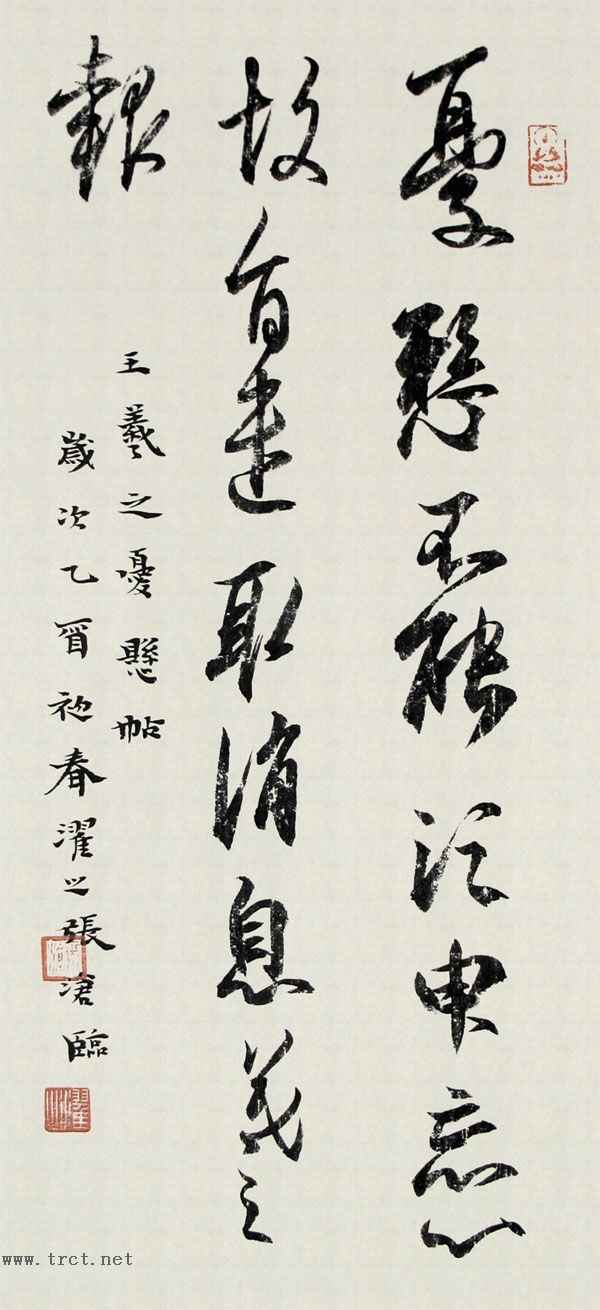 憂懸不能須臾忘心
故旨遣取消息羲之
報
王羲之憂懸帖
歲次乙酉初春濯之張滄臨
www.trct.net